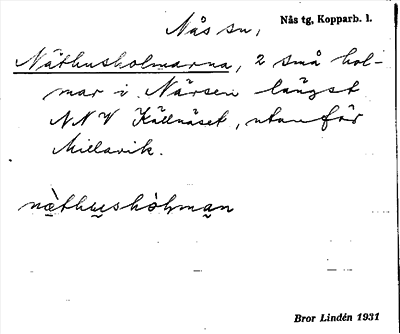 Nås sn, Nås tg, Kopparb. l.
Näthusholmarna, 2 små hol-
mar i Närsen längst
NNV Källnäset, utanför
Millavik.
nä̀thusho̊ḷman
Bror Lindén 1931